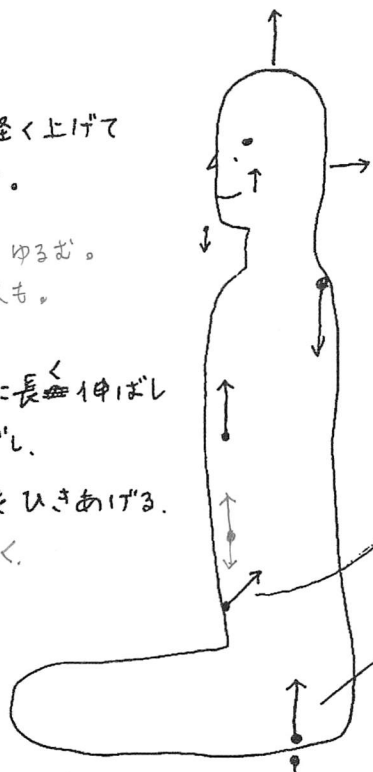 軽く上げて
。
ゆるむ。
も。
に長く伸ばし
し、
ひきあげる。
く。